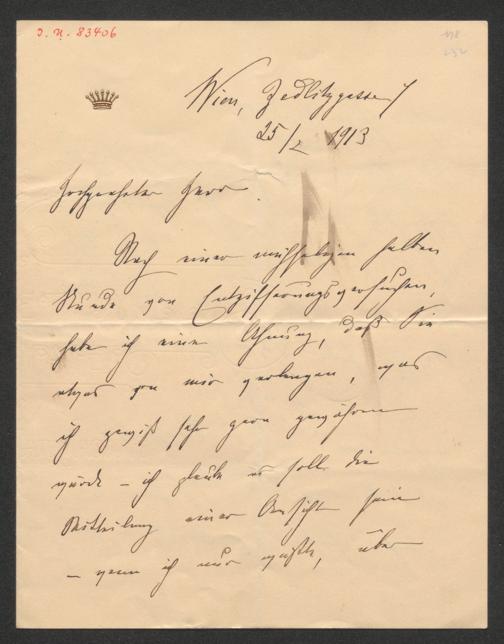 J. N. 83406
Wien, Zedlitzgasse 7
25/2 1913
Hochgeehrter Herr
Nach einer mühseligen halben
Stunde von Entzifferungsversuchen,
habe ich eine Ahnung, daß Sie
etwas von mir verlangen, was
ich gewiß sehr gern gewähren
würde – ich glaube es soll die
Mittheilung einer Ansicht sein
– wenn ich nur wüßte, über